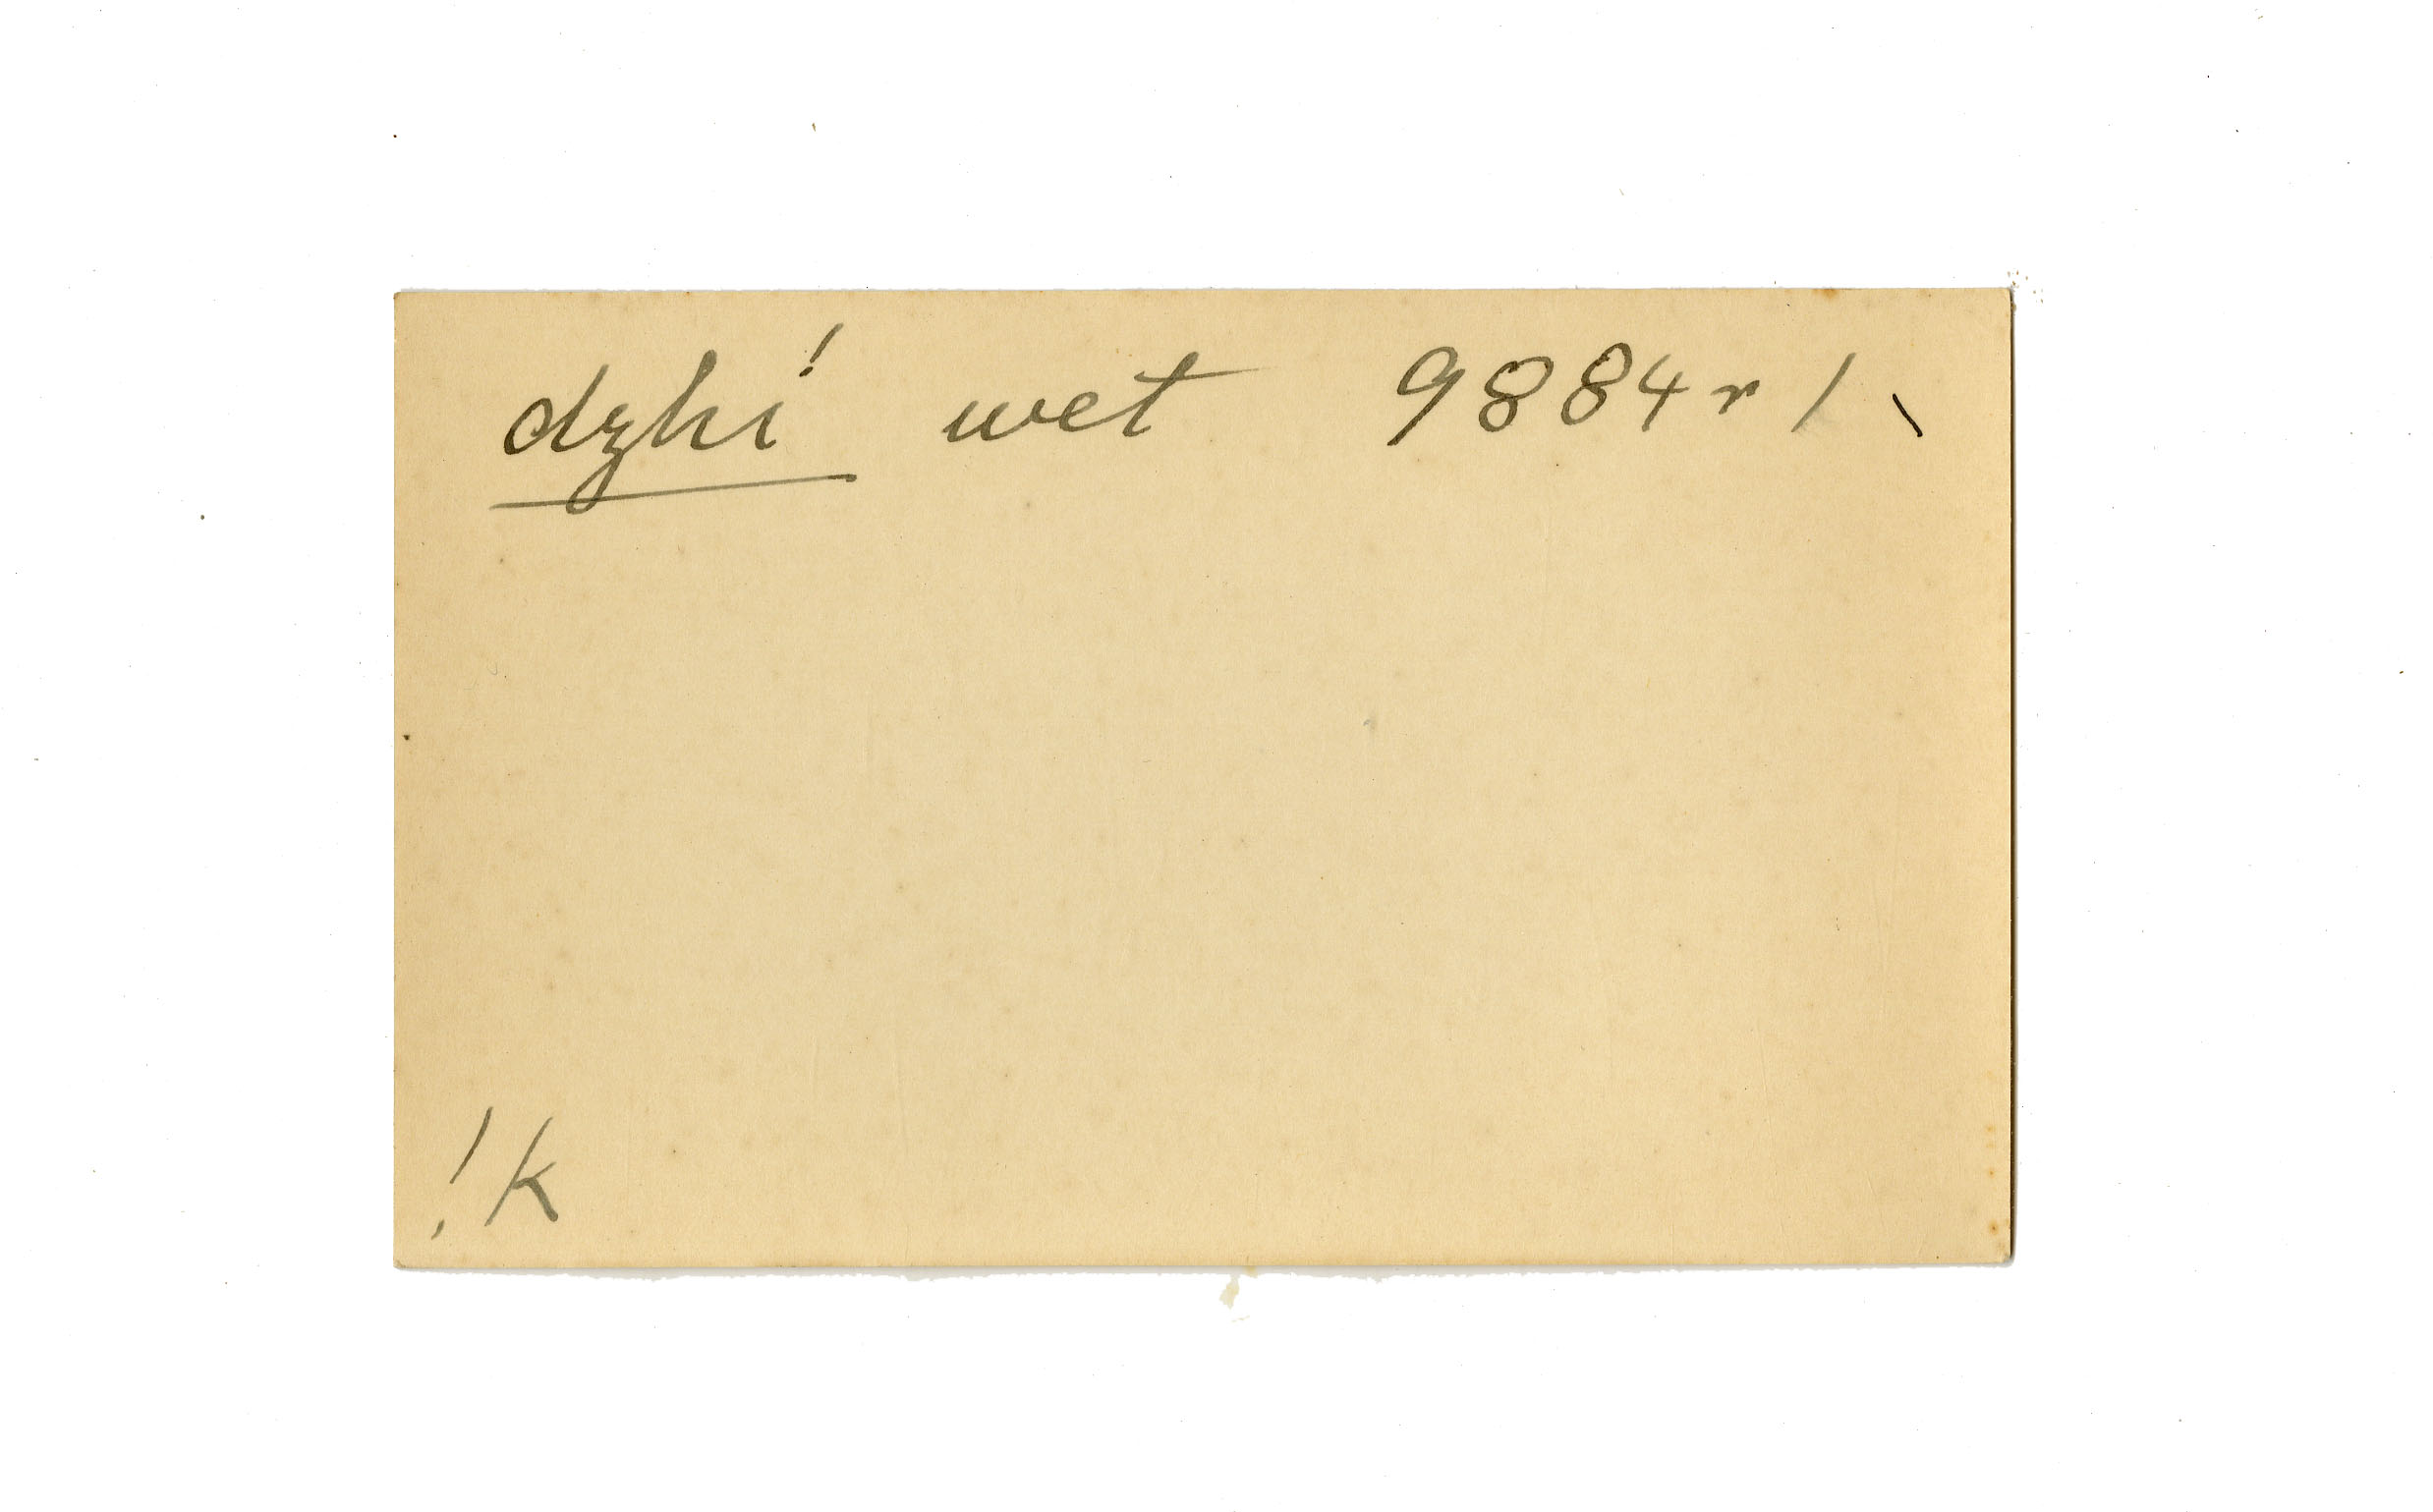 dzhí wet 9884r / \
!k